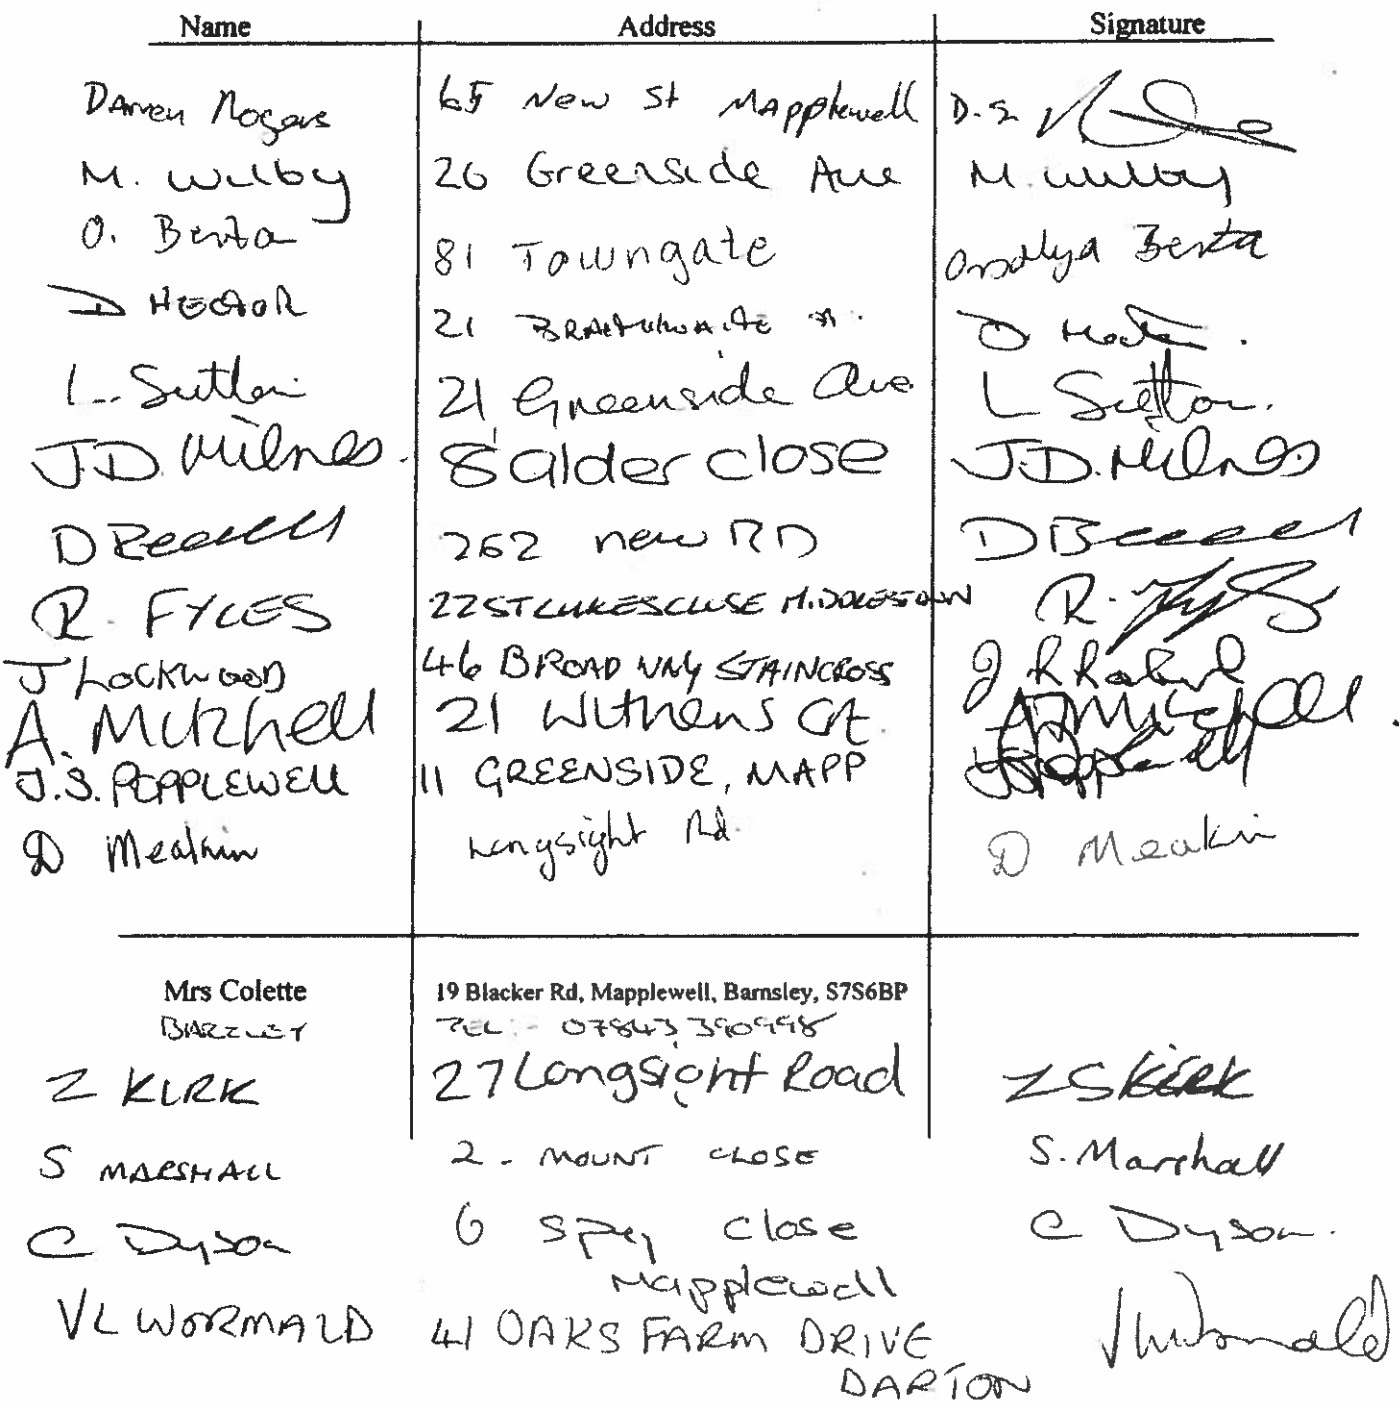 Name Address Signature
Darren Rogers 65 New St Mapplewell D.S.
M. Wilby 26 Greenside Ave M. Wilby
O. Berta 81 Towngate Orsolya Berta
D HECTOR 21 BRAITHWAITE D Hector.
L. Sutton 21 Greenside Ave L Sutton.
J.D. Milnes. 8 alder close J.D. Milnes
D 262 new RD D
R FYLES 22 ST LUKES CLOSE MIDDLESTOWN R. Fyles
J LOCKWOOD 46 BROAD WAY STAINCROSS J R
A. Mitchell 21 Withens Crt. A Mitchell.
J.S. POPPLEWELL 11 GREENSIDE, MAPP JS Popplewell
D Meakin Longsight Rd. D Meakin
Mrs Colette 19 Blacker Rd, Mapplewell, Barnsley, S7S6BP
TEL - 07843 390998
Z KIRK 27 Longsight Road Z S KIRK
S MARSHALL 2 - MOUNT CLOSE S. Marshall
C Dyson 6 Spey Close C Dyson.
Mapplewell
V L WORMALD 41 OAKS FARM DRIVE V L Wormald
DARTON